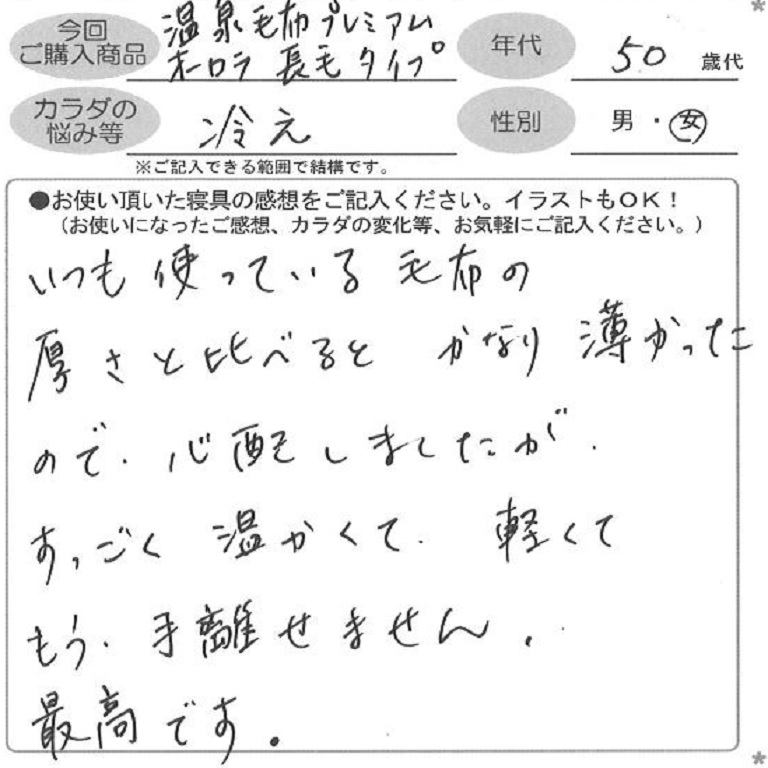 今回
ご購入商品
温泉毛布プレミアム
オーロラ 長毛タイプ
年代
50 歳代
カラダの
悩み等
冷え
性別
男・女
※ご記入できる範囲で結構です。
●お使い頂いた寝具の感想をご記入ください。イラストもOK！
（お使いになったご感想、カラダの変化等、お気軽にご記入ください。）
いつも使っている毛布の
厚さと比べると かなり薄かった
ので、心配しましたが、
すっごく温かくて、軽くて
もう、手離せません。
最高です。